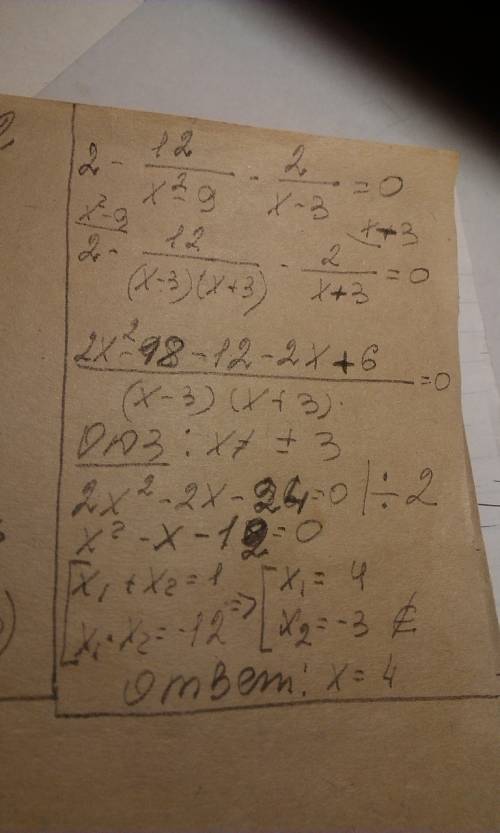 2 - 12/(x² - 9) - 2/(x - 3) = 0
x² - 9
x + 3
2 - 12/((x-3)(x+3)) - 2/(x+3) = 0
(2x² - 18 - 12 - 2x + 6)/((x-3)(x+3)) = 0
ОДЗ: x ≠ ± 3
2x² - 2x - 24 = 0 | ÷ 2
x² - x - 12 = 0
[x₁ + x₂ = 1
x₁ · x₂ = -12 => [x₁ = 4
x₂ = -3 ∉
Ответ: x = 4